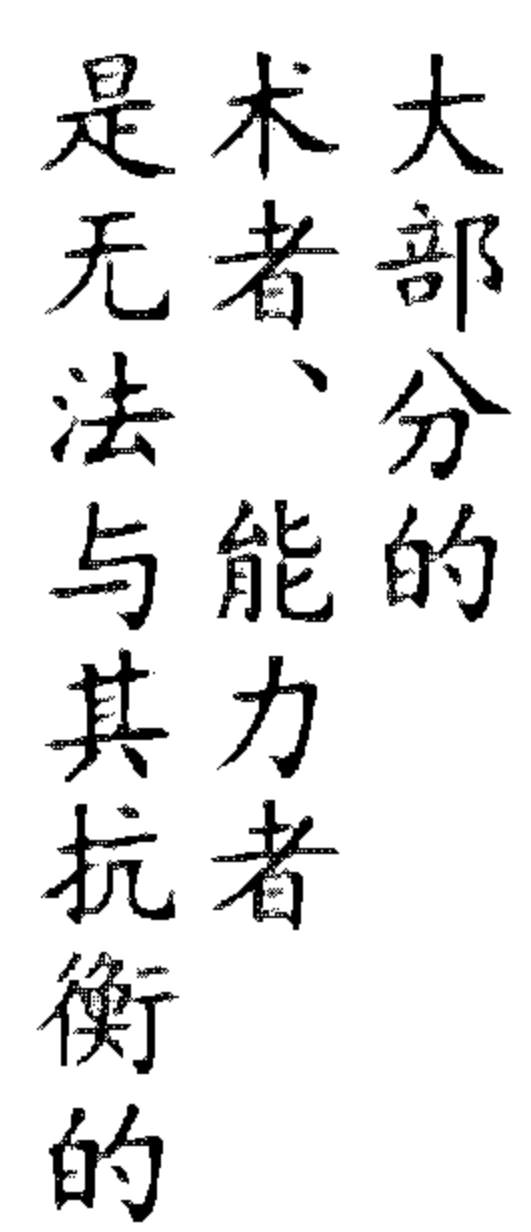 大部分的
术者、能力者
是无法与其抗衡的